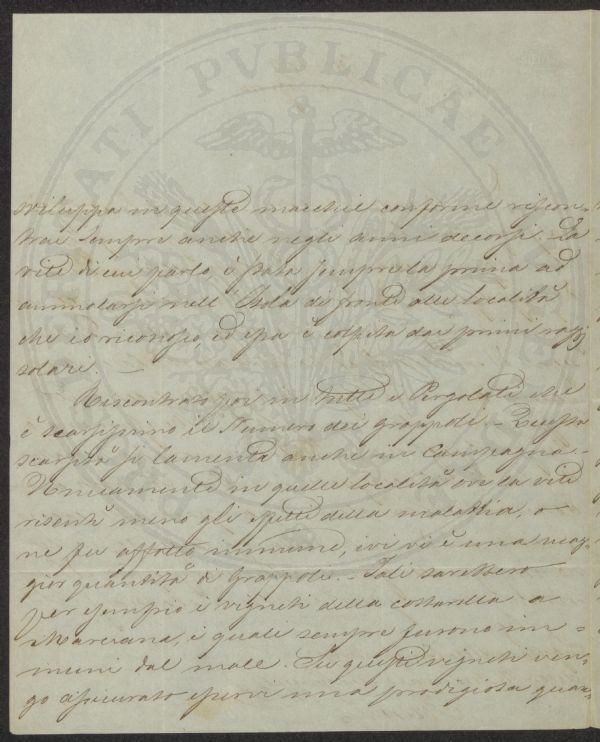 sviluppa in queste macchie conforme riscon-
trai sempre anche negli anni decorsi. La
vite di cui parlo, è stata sempre la prima ad
ammalarsi nell' Isola di fronte alle località
che io riconosco, ed essa è colpita dai primi raggi
solari. —
Riscontrasi poi in tutti i Pergolati che
è scarsissimo il Numero dei grappoli. - Questa
scarsità si lamenta anche in Campagna. -
Unicamente in quelle località ove la vite
risentì meno gli effetti della malattia, o
ne fu affatto immune, ivi vi è una mag-
gior quantità di Grappoli. - Tali sarebbero
per esempio i vigneti della costarella a
Marciana, i quali sempre furono im-
muni dal male. In questi vigneti ven-
go assicurato esservi una prodigiosa quan-
PVBLICAE